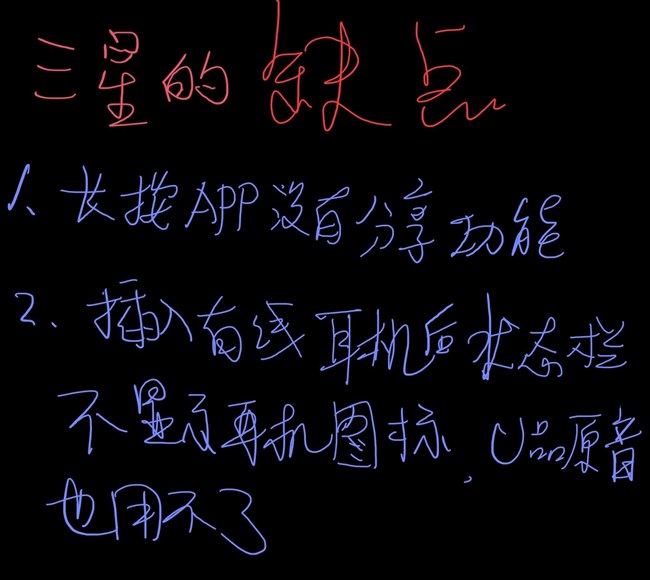 三星的缺点
1、长按APP没有分享功能
2、插入有线耳机后状态栏
不显示耳机图标，U品原音
也用不了